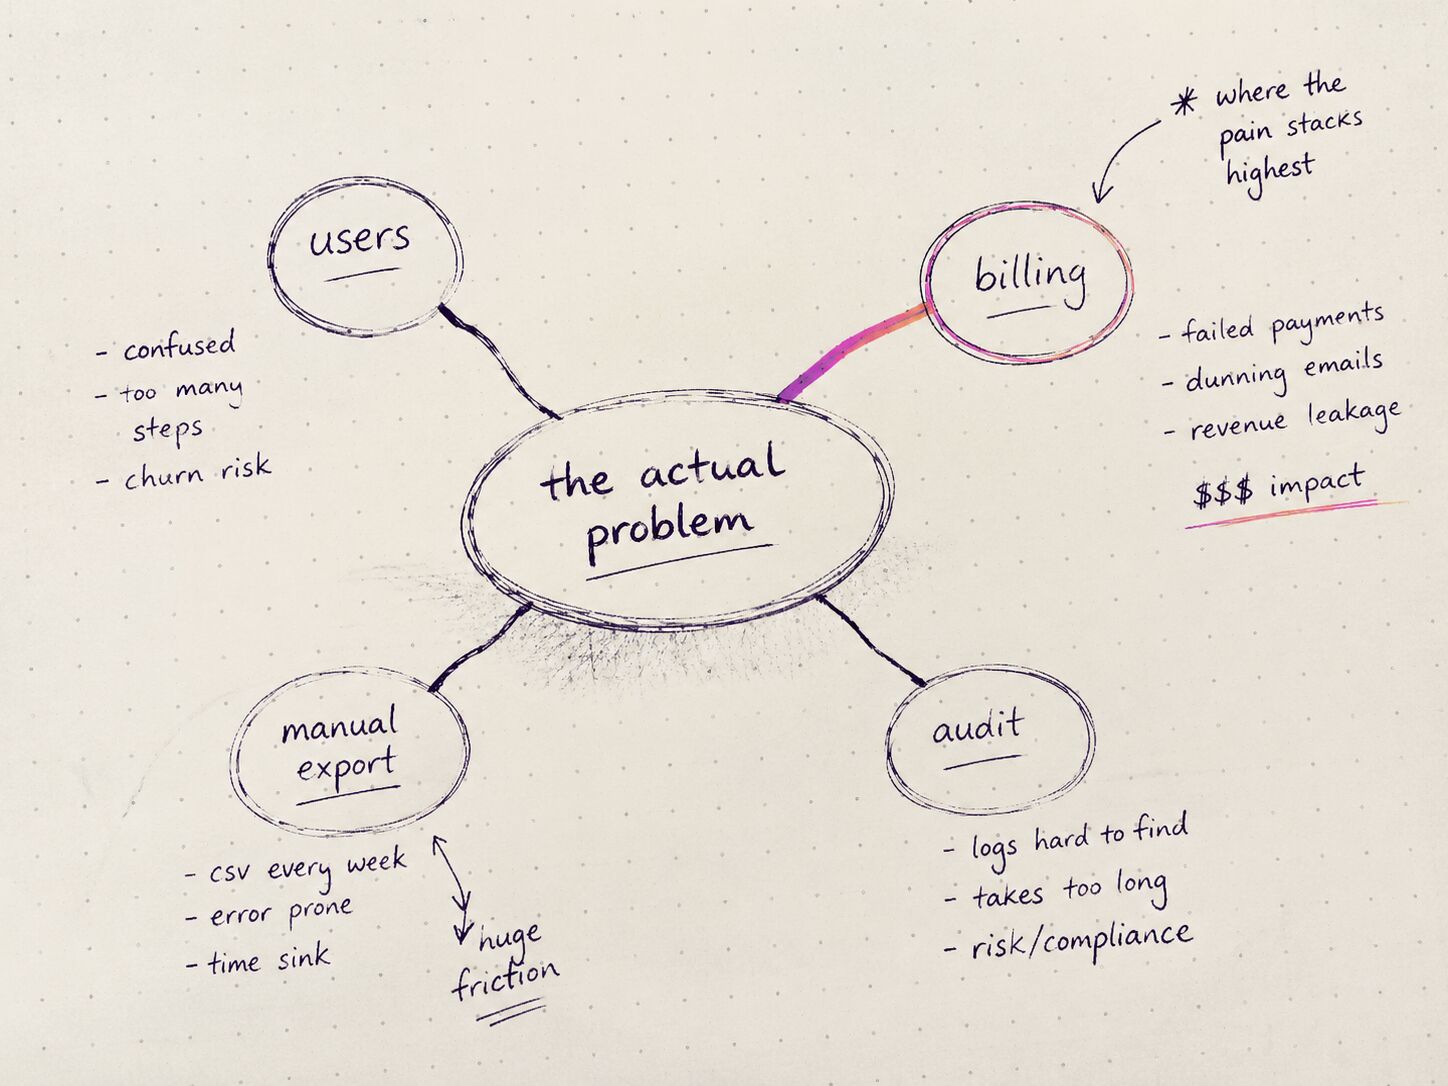 * where the
pain stacks
highest
users
billing
- confused
- too many
steps
- churn risk
- failed payments
- dunning emails
- revenue leakage
$$$ impact
the actual
problem
manual
export
audit
- csv every week
- error prone
- time sink
huge
friction
- logs hard to find
- takes too long
- risk/compliance